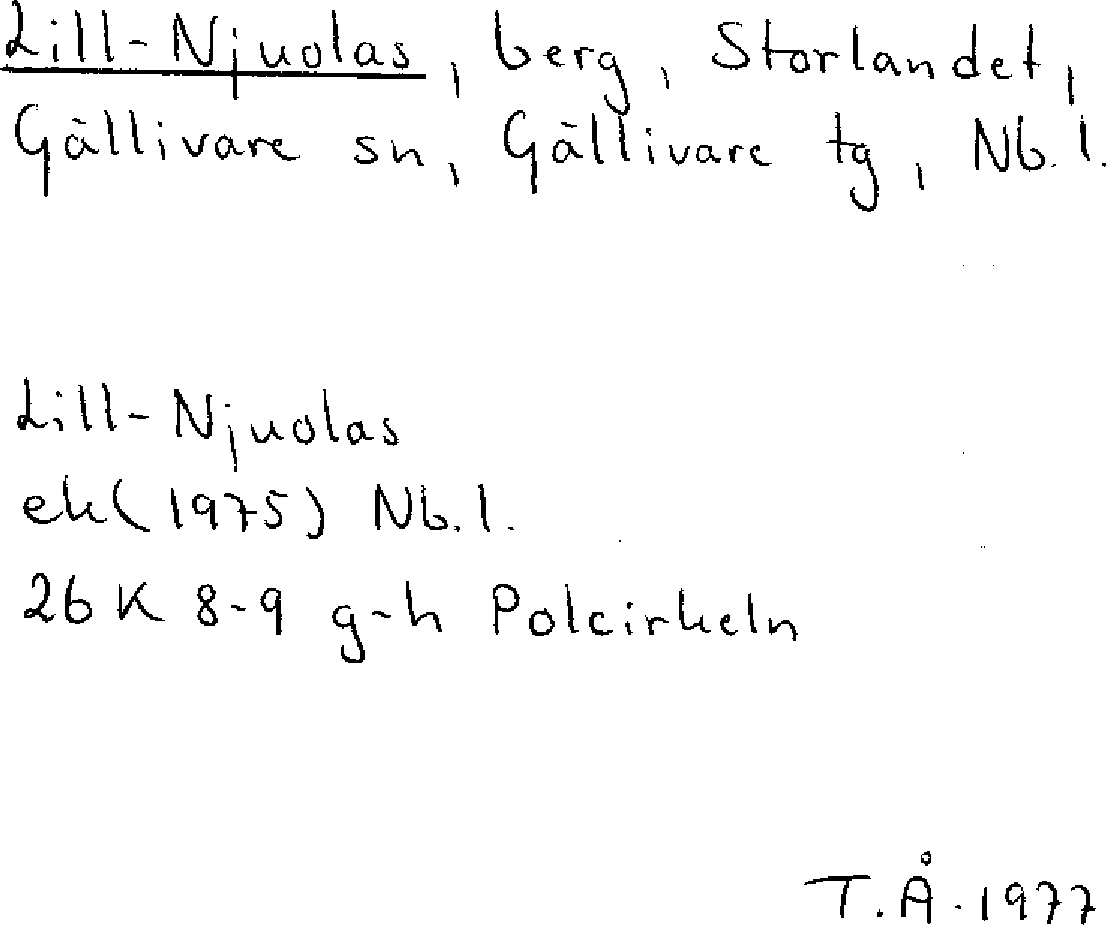 Lill-Njuolas, berg, Storlandet,
Gällivare sn, Gällivare tg, Nb.l.
Lill-Njuolas
ek(1975) Nb.l.
26 K 8-9 g-h Polcirkeln
T.Å.1977